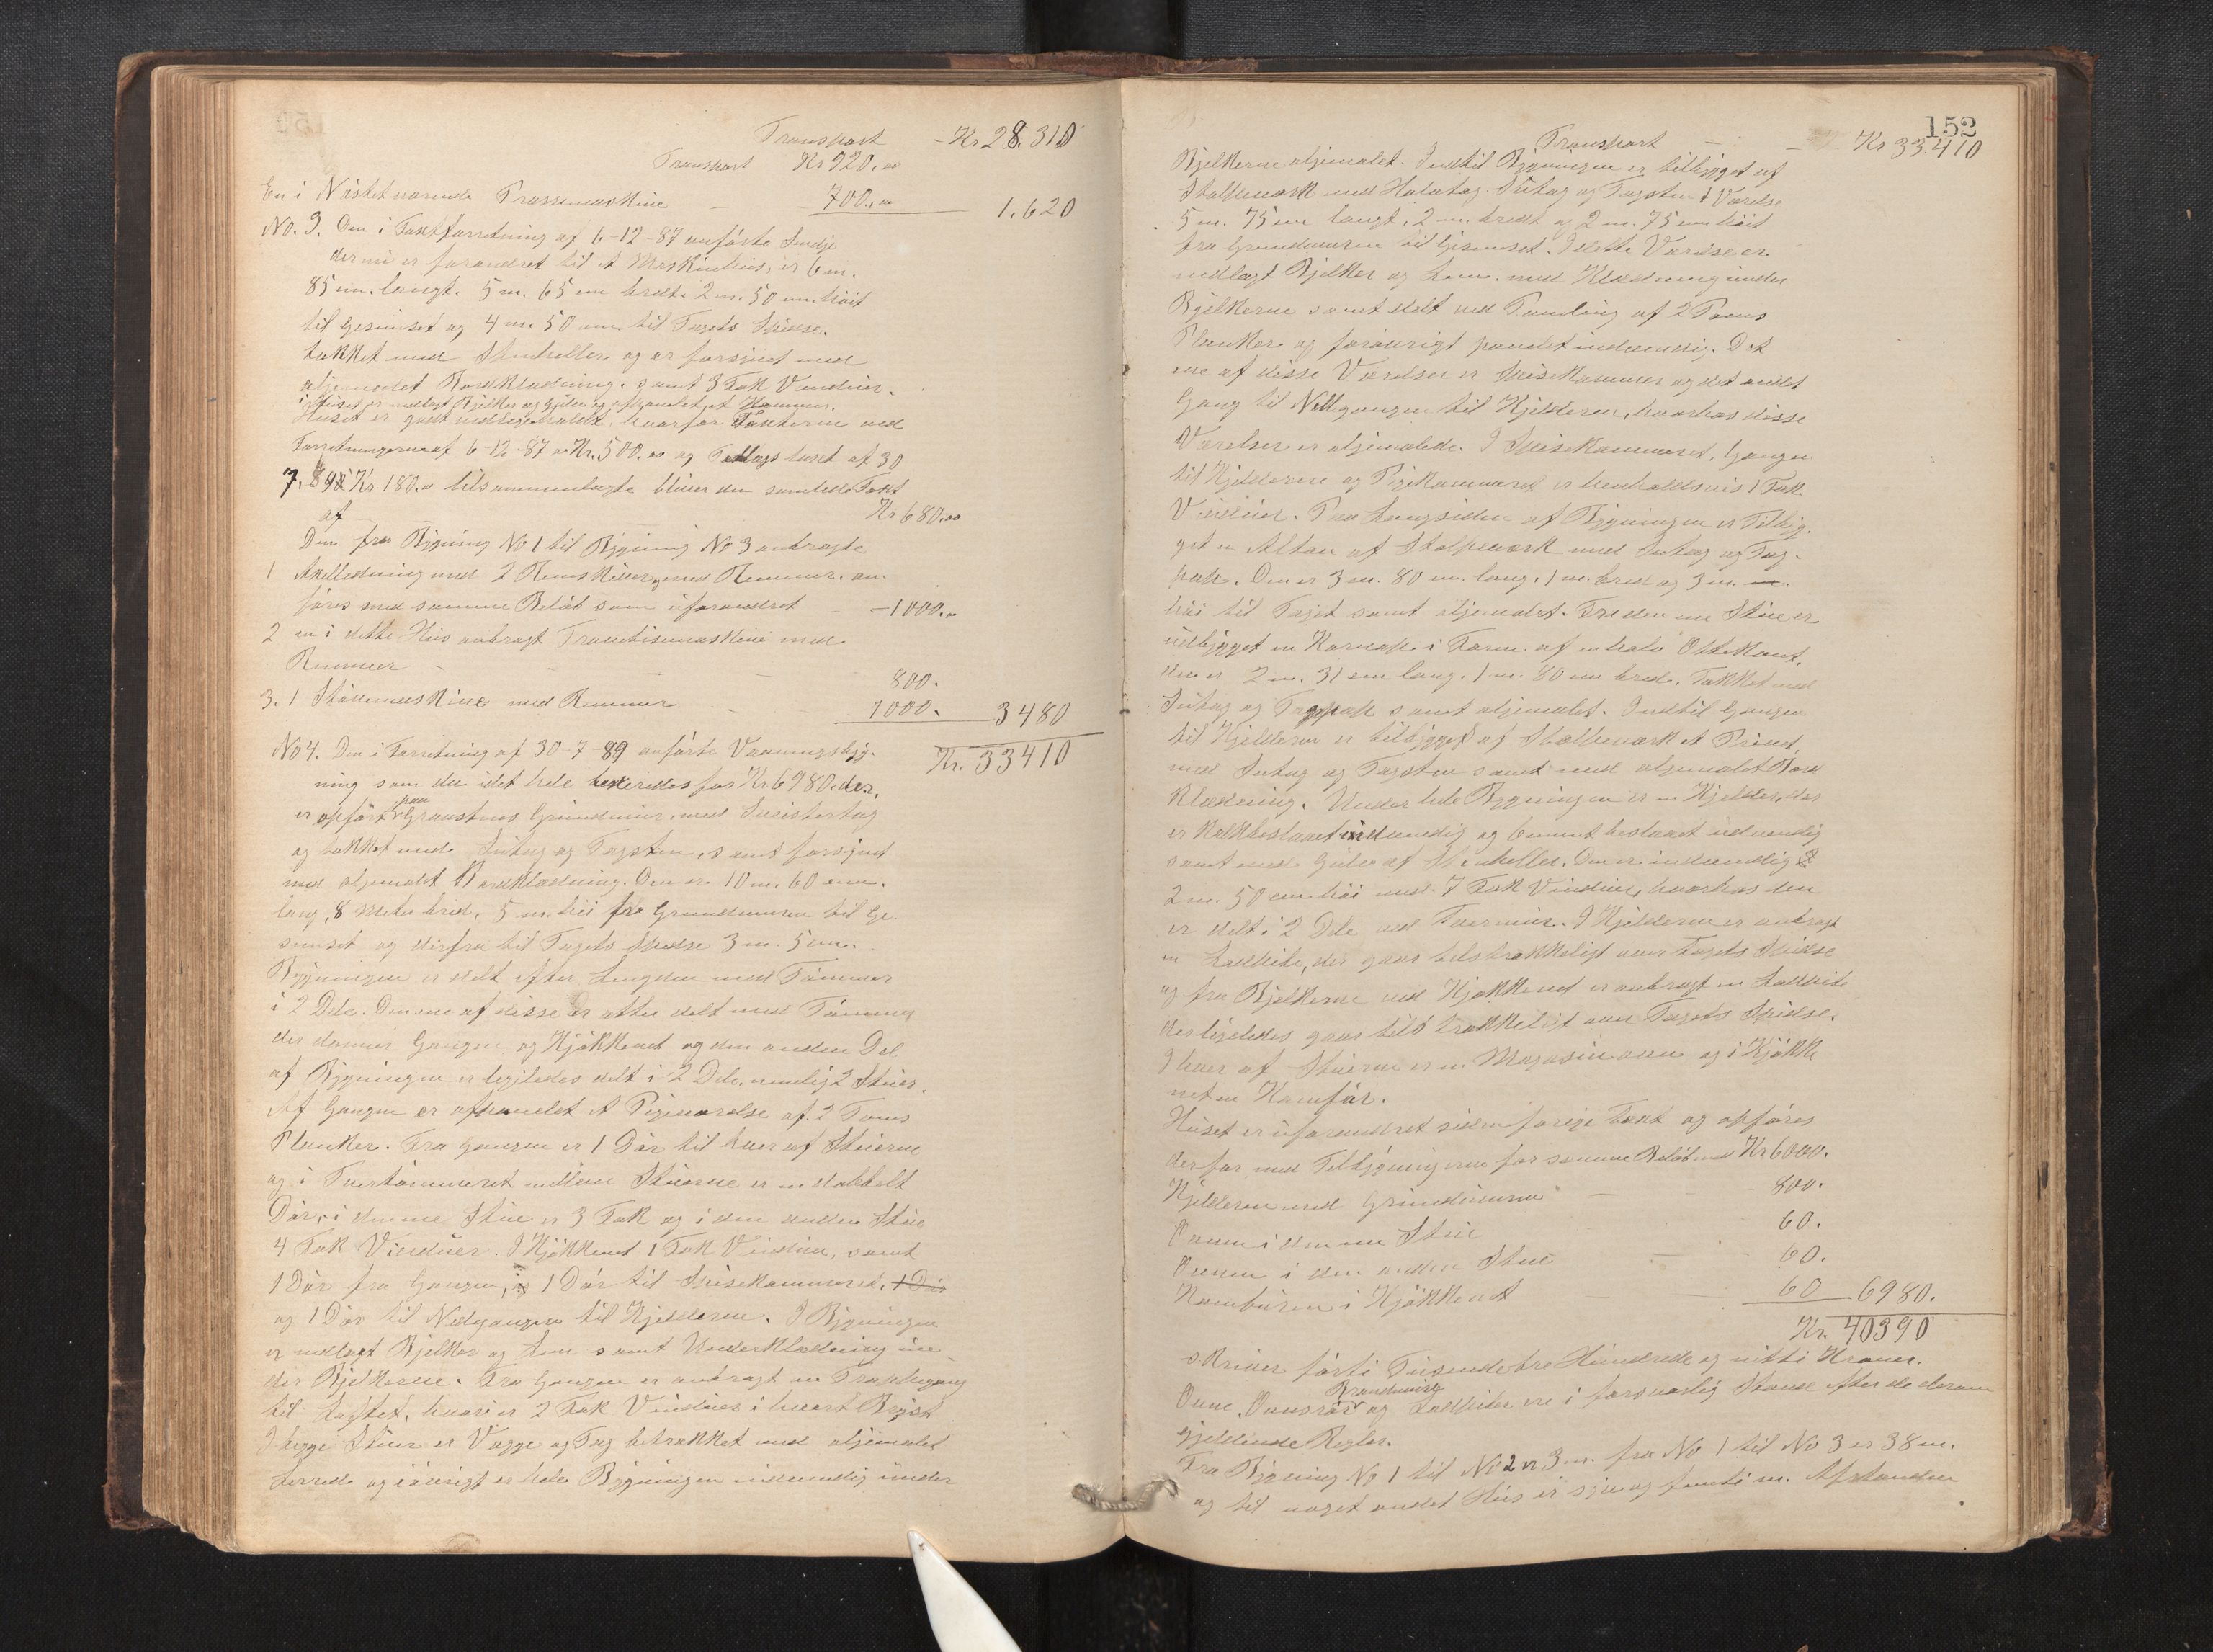 Transport - Kr 28.310
Transport Kr 920.00
En i Nästet værende Prassemaskine - 700.00 1.620
No. 3. Den i Taxtforretning af 6-12-87 anførte Smedje
der nu er forandret til et Maskinhus, er 6 m.
85 cm. langt. 5 m. 65 cm bredt. 2 m. 50 cm. høit
til Gesimset og 4 m. 50 cm. til Tagets Spidse.
tækket med Stenheller og er forsynet med
oljemalet Bordklædning. samt 3 Fak Vinduer.
i Huset er indlagt Bjelker og Gulv og afpanelet et Kammer.
Huset er godt vedligeholdt, hvorfor Taxterne ved
Forretningerne af 6-12-87 Kr. 500.00 og Tillægs taxt af 30
7. 89 Kr 180.00 tilsammenlagte bliver den samlede Taxt
af Kr 680.00
Den fra Bygning No 1 til Bygning No 3 anbragte
1 Axelledning med 2 Remskiver, med Remmer. an-
føres med samme Beløb som uforandret - 1000.00
2 en i dette Hus anbragt Maskine med
Remmer - - - 800.
3. 1 Maskine med Remmer - 1000. 3480
Kr. 33410
No 4. Den i Forretning af 30-7-89 anførte Vaaningsbyg-
ning som der i det hele vurderedes for Kr. 6980. der.
er opført paa Graastens Grundmur, med Sperrestortag
og tækket med Sutag og Tagsten, samt forsynet
med oljemalet Bordklædning. Den er 10 m. 60 cm.
lang, 8 Meter bred, 5 m. høi fra Grundmuren til Ge-
simset og derfra til Tagets Spidse 3 m. 5 cm.
Bygningen er delt efter Længden med Tømmer
i 2 Dele. Den ene af disse er atter delt med Tømmer
der danner Gangen og Kjøkkenet og den anden Del
af Bygningen er ligeledes delt i 2 Dele, nemlig 2 Stuer.
Af Gangen er afpanelet et Pigeværelse af 2 Toms
Planker. Fra Gangen er 1 Dør til hver af Stuerne
og i Tvertømmeret mellem Stuerne er en dobbelt
Dør, i den ene Stue er 3 Fak og i den anden Stue
4 Fak Vinduer. I Kjøkkenet 1 Fak Vindue, samt
1 Dør fra Gangen, 1 Dør til Spisekammeret, 1 Dør
og 1 Dør til Nedgangen til Kjelderen. I Bygningen
er indlagt Bjelker og Lem samt Underklædning un-
der Bjelkerne. Fra Gangen er anbragt en Trappegang
til Loftet, hvori er 2 Fak Vinduer i hvert Bryst
I begge Stuer er Vægge og Tag betrækket med oljemalet
Lerred og iøvrigt er hele Bygningen indvendig under
152
Transport - - Kr 33.410
Bjelkerne oljemalet. Indtil Bygningen er tilbygget af
Stolpeværk med Halvtag. Sutag og Tagsten 1 Værelse
5 m. 75 cm langt, 2 m. bredt og 2 m. 75 cm høit
fra Grundmuren til Gesimset. I dette Værelse er
indlagt Bjelker og Lem. med Klædning under
Bjelkerne samt delt ved Paneling af 2 Toms
Planker og forøvrigt panelt indvendig. Det
ene af disse Værelser er Spisekammer og det andet
Gang til Nedgangen til Kjelderen, hvorhos disse
Værelser er oljemalede. I Spisekammeret, Gangen
til Kjelderen og Pigekammeret er henholdsvis 1 Fak
Vinduer. Paa Langsiden af Bygningen er Tilbyg-
get en Altan af Stolpeværk med Sutag og Tag-
pap. Den er 3 m. 80 cm. lang, 1 m. bred og 3 m.
høi til Taget samt oljemalet. Fra den ene Stue er
udbygget en Karnap i Form af en halv Ottekant,
den er 2 m. 31 cm lang. 1 m. 80 cm bred. Tækket med
Sutag og Tagpap samt oljemalet. Indtil Gangen
til Kjelderen er tilbygget af Stolpeværk et Privet,
med Sutag og Tagsten samt med oljemalet Bord
klædning. Under hele Bygningen er en Kjelder, der
er Kalkbeslaaet indvendig og Cement beslaaet udvendig
samt med Gulv af Stenheller. Den er indvendig
2 m. 50 cm høi med 7 Fak Vinduer, hvorhos den
er delt i 2 Dele ved Tvermur. I Kjelderen er anbragt
en Ladpibe, der gaar tilstrækkeligt over Tagets Spidse
og fra Bjelkerne ved Kjøkkenet er anbragt en Ladpibe
der ligeledes gaar tilstrækkeligt over Tagets Spidse.
I hver af Stuerne er en Magasin ovn og i Kjøkke
net en Komfur.
Huset er uforandret siden forrige Taxt og opføres
derfor med Tilbygningerne for samme Beløb med Kr 6000.
Kjelderen med Grundmuren - - 800.
Ovnen i den ene Stue 60.
Ovnen i den anden Stue - - 60.
Komfuren i Kjøkkenet - - 60 6980.
Kr. 40390
skriver førti Tusinde tre Hundrede og nitti Kroner.
Ovne, Ovnsrør Brandmure og Ladpiber ere i forsvarlig Stand efter de derom
gjeldende Regler.
Fra Bygning No 1 til No 2 er 3 m. fra No 1 til No 3 er 38 m.
og til noget andet Hus er syv og femti m. Afstanden